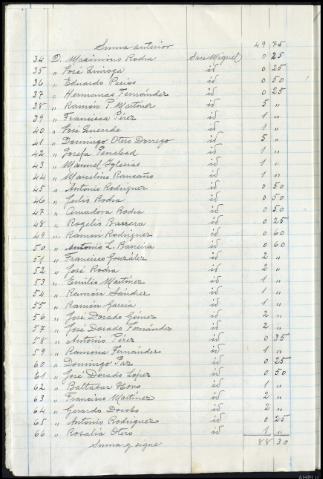 Suma anterior 49 75
34 D. Maximino Rodra San Miguel 0 25
35 " José Quiroga id 0 25
36 " Eduardo Pereira id 0 50
37 " Hermanas Fernández id 0 25
38 " Ramón P. Martínez id 5 "
39 " Francisca Pérez id 1 "
40 " José id 1 "
41 " Domingo Otero Dorrego id 5 "
42 " Josefa id 1 "
43 " Manuel Iglesias id 1 "
44 " Marcelino id 1 "
45 " Antonio Rodríguez id 0 50
46 " Julio Rodra id 0 50
47 " Amadora Rodra id 0 50
48 " Rogelio Barrera id 0 25
49 " Ramón Rodríguez id 0 60
50 " Antonio L. Baneira id 0 60
51 " Francisco González id 2 "
52 " José Rodra id 2 "
53 " Emilio Martínez id 1 "
54 " Ramón id 1 "
55 " Ramón García id 1 "
56 " José Dorado Gómez id 2 "
57 " José Dorado Fernández id 2 "
58 " Antonio Pérez id 0 35
59 " Ramona Fernández id 1 "
60 " Domingo Paz id 0 25
61 " José Dorado López id 0 50
62 " Baltasar id 1 "
63 " Francisco Martínez id 2 "
64 " Gerardo id 2 "
65 " Antonio Rodríguez id 0 25
66 " Rosalía Otero id 1 "
Suma y sigue 88 30